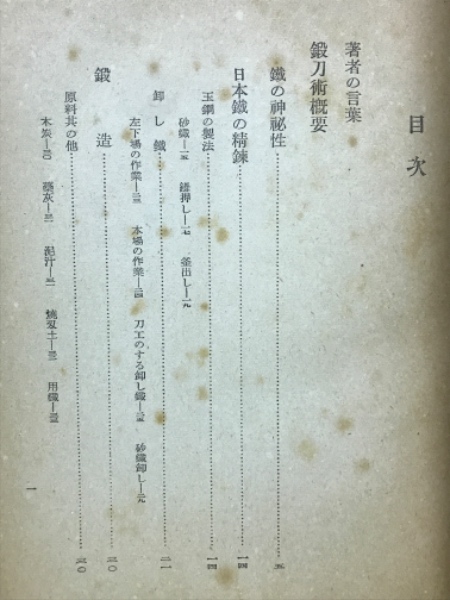 目次
著者の言葉
鍛刀術概要
鐵の神祕性……五
日本鐵の精鍊……一四
玉鋼の製法……一四
砂鐵―一五 鑪押し―一七 釜出し―一九
卸し鐵……二一
左下場の作業―二三 本場の作業―二四 刀工のする卸し鐵―二六 砂鐵卸し―二九
鍛造……三〇
原料其の他……三〇
木炭―三〇 藁灰―三一 泥汁―三一 燒刄土―三二 用鐵―三三
一